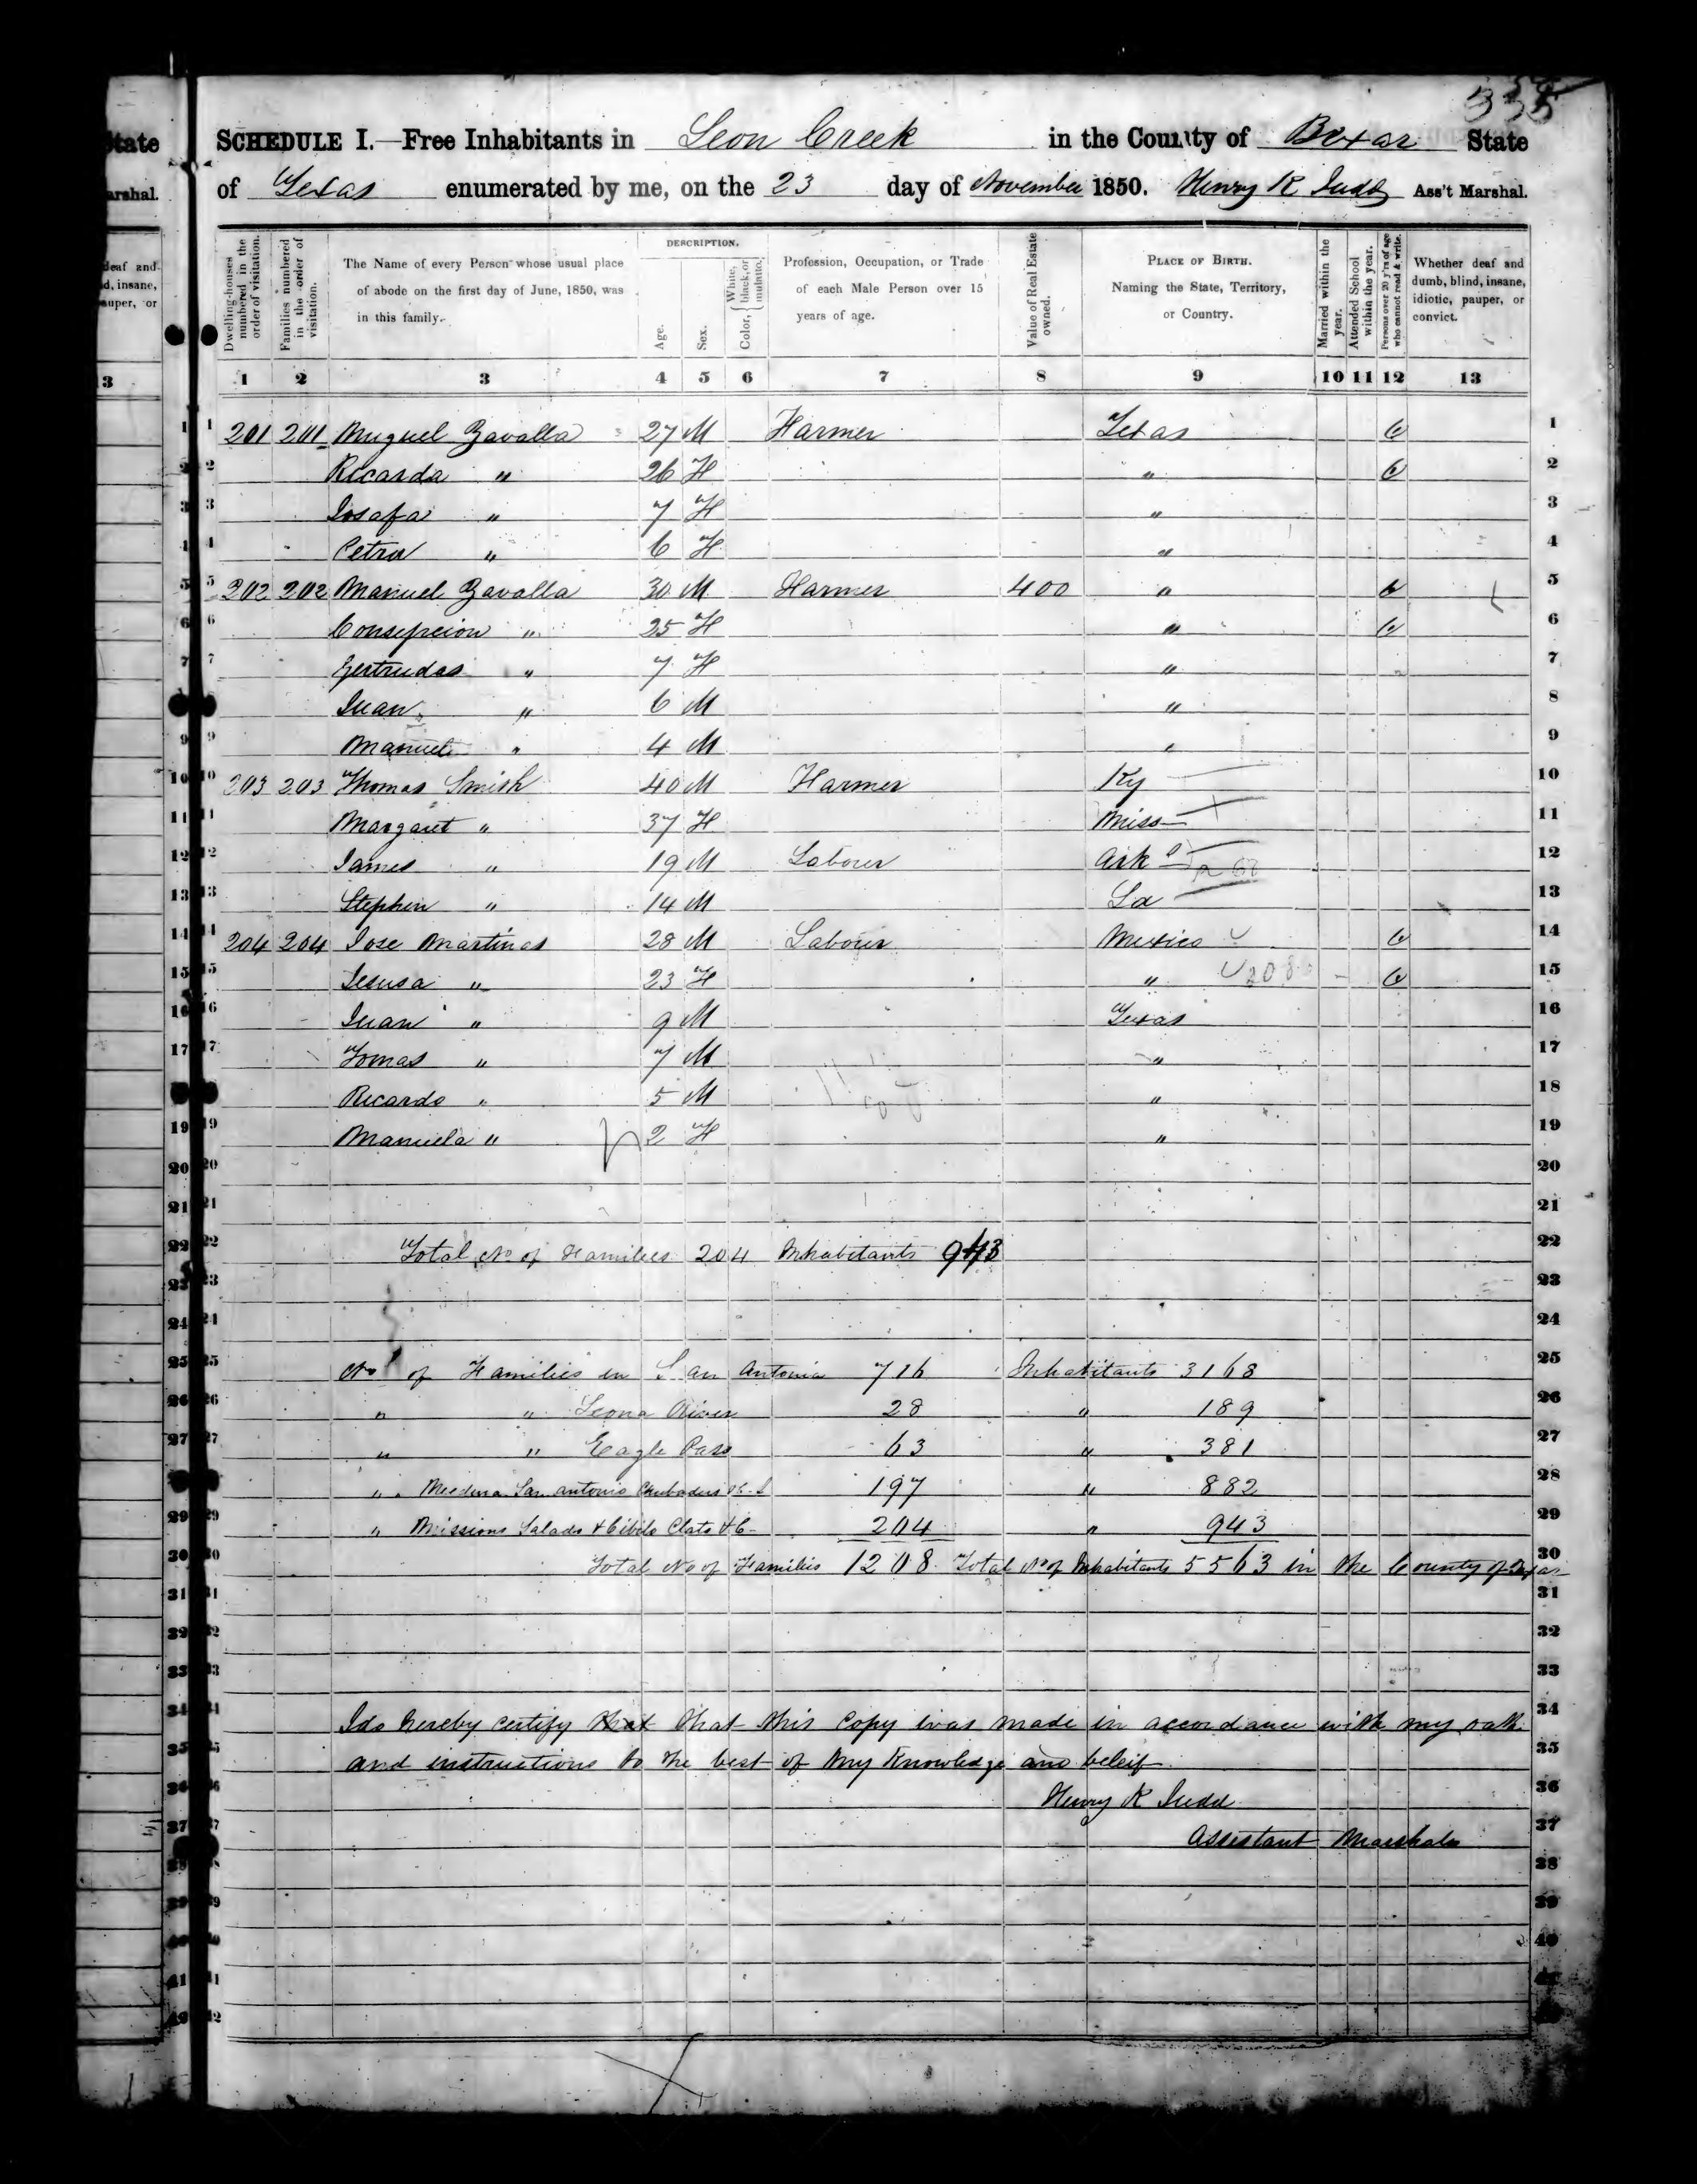 335
SCHEDULE I.—Free Inhabitants in Leon Creek in the County of Bexar State
of Texas enumerated by me, on the 23 day of November 1850. Henry K Judd Ass't Marshal.
Dwelling-houses numbered in the order of visitation.
Families numbered in the order of visitation.
The Name of every Person whose usual place of abode on the first day of June, 1850, was in this family.
DESCRIPTION.
Age.
Sex.
Color, { White, black, or mulatto.
Profession, Occupation, or Trade of each Male Person over 15 years of age.
Value of Real Estate owned.
PLACE OF BIRTH. Naming the State, Territory, or Country.
Married within the year.
Attended School within the year.
Persons over 20 y'rs of age who cannot read & write.
Whether deaf and dumb, blind, insane, idiotic, pauper, or convict.
1 2 3 4 5 6 7 8 9 10 11 12 13
1 201 201 Miguel Zavalla 27 M Farmer Texas 1
2 Ricarda " 26 F " 2
3 Josafa " 7 F " 3
4 Petra " 6 F " 4
5 202 202 Manuel Zavalla 30 M Farmer 400 " 5
6 Consepcion " 25 F " 6
7 Gertrudas " 7 F " 7
8 Juan " 6 M " 8
9 Manuel " 4 M " 9
10 203 203 Thomas Smith 40 M Farmer Ky 10
11 Margaret " 37 F Miss 11
12 James " 19 M Labour Ark 12
13 Stephen " 14 M La 13
14 204 204 Jose Martinas 28 M Labour Mexico 14
15 Jesusa " 23 F " 15
16 Juan " 9 M Texas 16
17 Tomas " 7 M " 17
18 Ricardo " 5 M " 18
19 Manuela " 2 F " 19
20 20
21 21
22 Total No of Families 204 Inhabitants 943 22
23 23
24 24
25 No of Families in San Antonio 716 Inhabitants 3168 25
26 " " Leona River 28 " 189 26
27 " " Eagle Pass 63 " 381 27
" Medina San Antonio 197 " 882 28
29 " Missions Salado & Cibilo & C 204 " 943 29
30 Total No of Families 1208 Total No of Inhabitants 5563 in the County of Bexar 30
31 31
32 32
33 33
34 I do hereby certify that that this copy was made in accordance with my oath 34
35 and instructions to the best of my Knowledge and beleif 35
36 Henry K Judd 36
37 Assistant Marshal 37
38 38
39 39
40 40
41 41
42